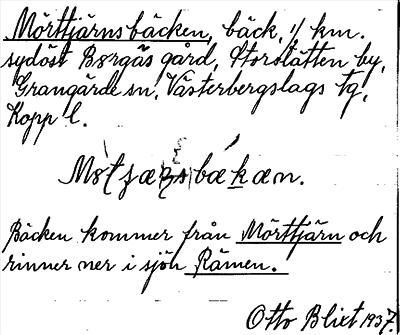 Mörttjärnsbäcken, bäck, 11 km.
sydöst Bergås gård, Storslätten by,
Grangärde sn, Västerbergslags tg,
Kopp l.
bækæn.
Bäcken kommer från Mörttjärn och
rinner ner i sjön Rämen.
Otto Blixt 1937.